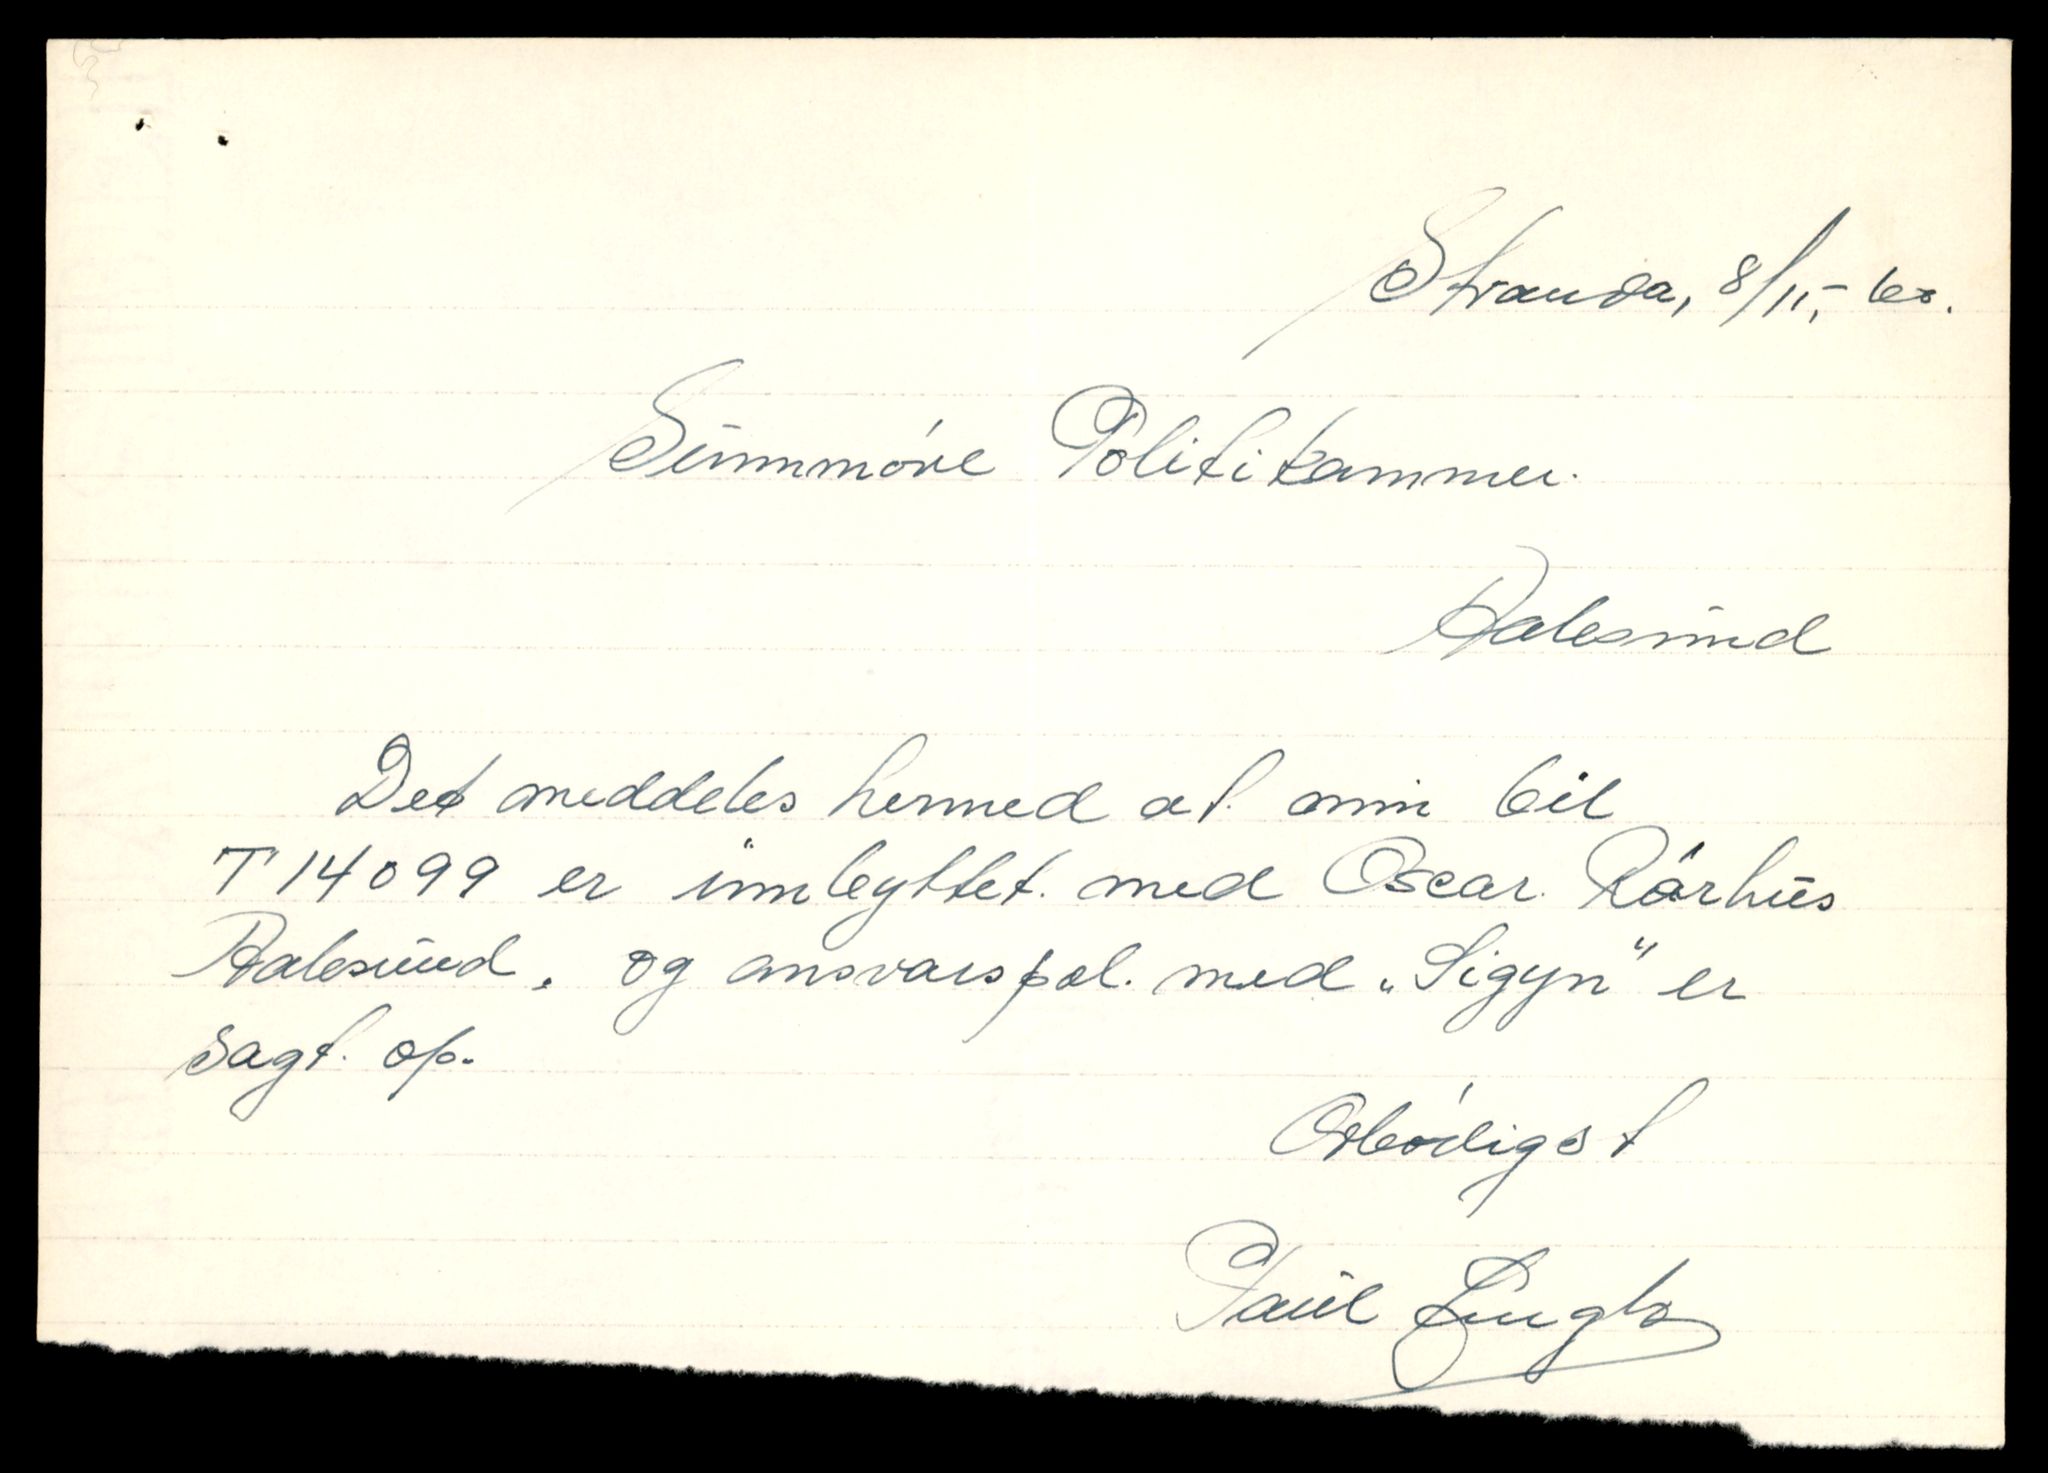 Stranda, 8/11,- 60.
Sunnmöre Politikammer.
Aalesund
Det meddeles hermed at min bil
T 14099 er innbyttet med Oscar Rörhus
Aalesund. og ansvarspol. med „Sigyn" er
sagt op.
Ærbödigst
Paul